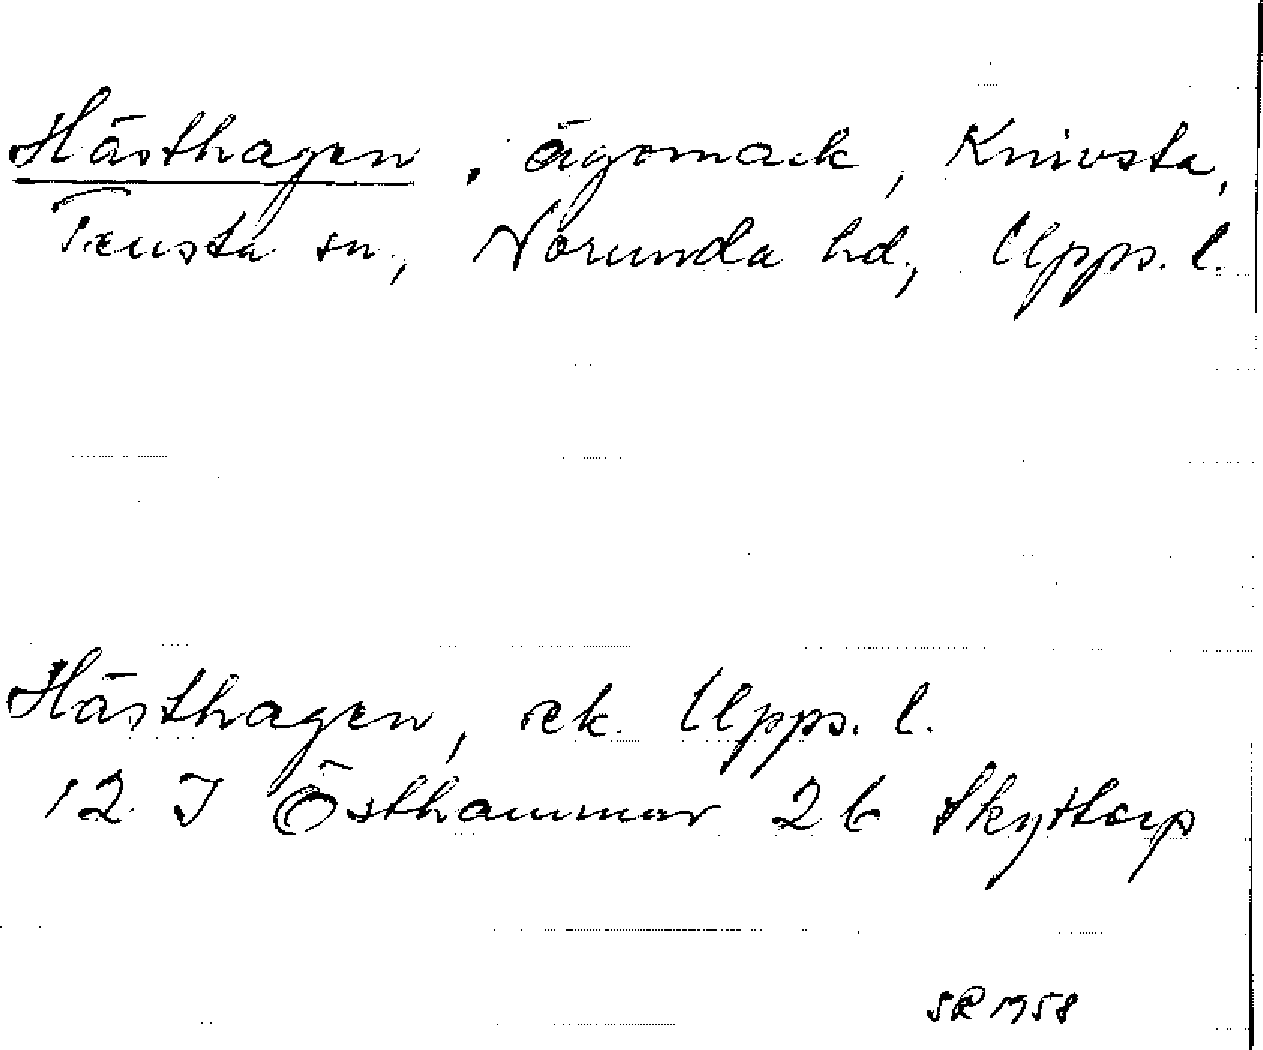 Hästhagen, ägomark, Knivsta,
Tensta sn, Norunda hd, Upps. l.
Hästhagen, ek. Upps. l.
12 I Östhammar 2b Skyttorp
SR 1958